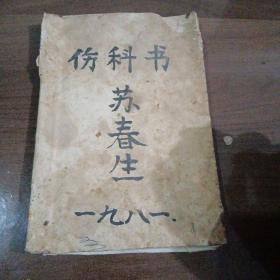 伤科书
苏春生
一九八一.